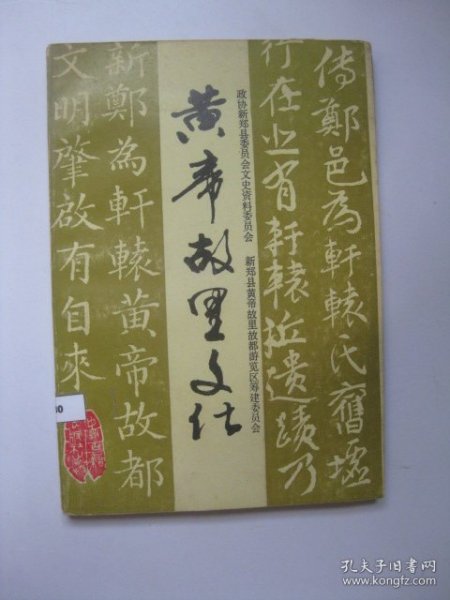 传鄭邑为軒轅氏舊墟
行在北有軒轅丘遺蹟乃
政协新郑县委员会文史资料委员会
新郑县黄帝故里故都游览区筹建委员会
黄帝故里文化
新鄭為軒轅黃帝故都
文明肇啟有自來
00
孔夫子旧书网
www.kongfz.com